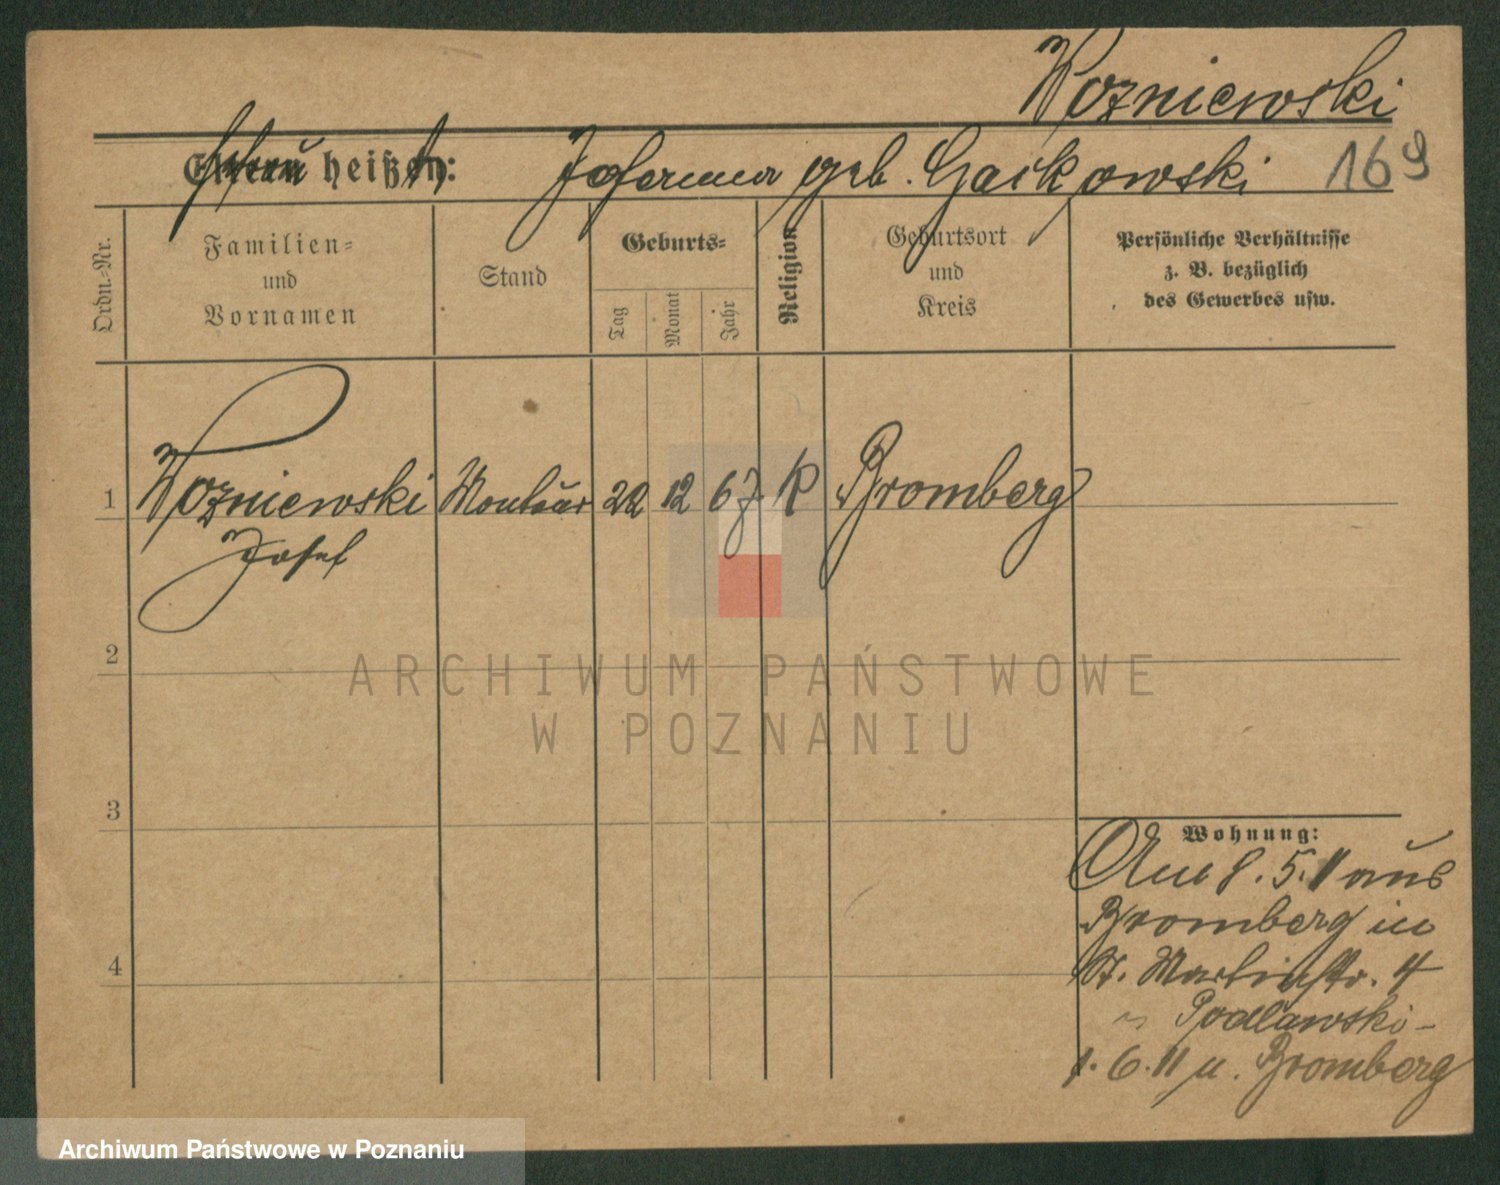 Wozniewski
Eltern heißen: Johanna geb. Gaikowski 169
Ordn.-Nr.
Familien-
und
Vornamen
Stand
Geburts-
Tag
Monat
Jahr
Religion
Geburtsort
und
Kreis
Persönliche Verhältnisse
z. B. bezüglich
des Gewerbes usw.
1 Wozniewski Monteur 22 12 67 K Bromberg
Josef
2
ARCHIWUM PAŃSTWOWE
W POZNANIU
3
Wohnung:
Am 8. 5. 11 aus
Bromberg in
St. Martinstr. 4
4
Podlawski-
1. 6. 11 n. Bromberg
Archiwum Państwowe w Poznaniu